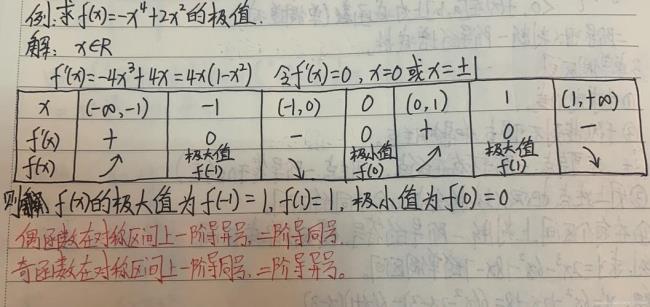 例:求f(x)=-x⁴+2x²的极值.
解: x∈R
f'(x)=-4x³+4x=4x(1-x²) 令f'(x)=0, x=0或x=±1
x (-∞,-1) -1 (-1,0) 0 (0,1) 1 (1,+∞)
f'(x) + 0 - 0 + 0 -
f(x) ↗ 极大值 f(-1) ↘ 极小值 f(0) ↗ 极大值 f(1) ↘
则 f(x)的极大值为f(-1)=1, f(1)=1, 极小值为f(0)=0
偶函数在对称区间上一阶导异号,二阶导同号.
奇函数在对称区间上一阶导同号,二阶导异号。